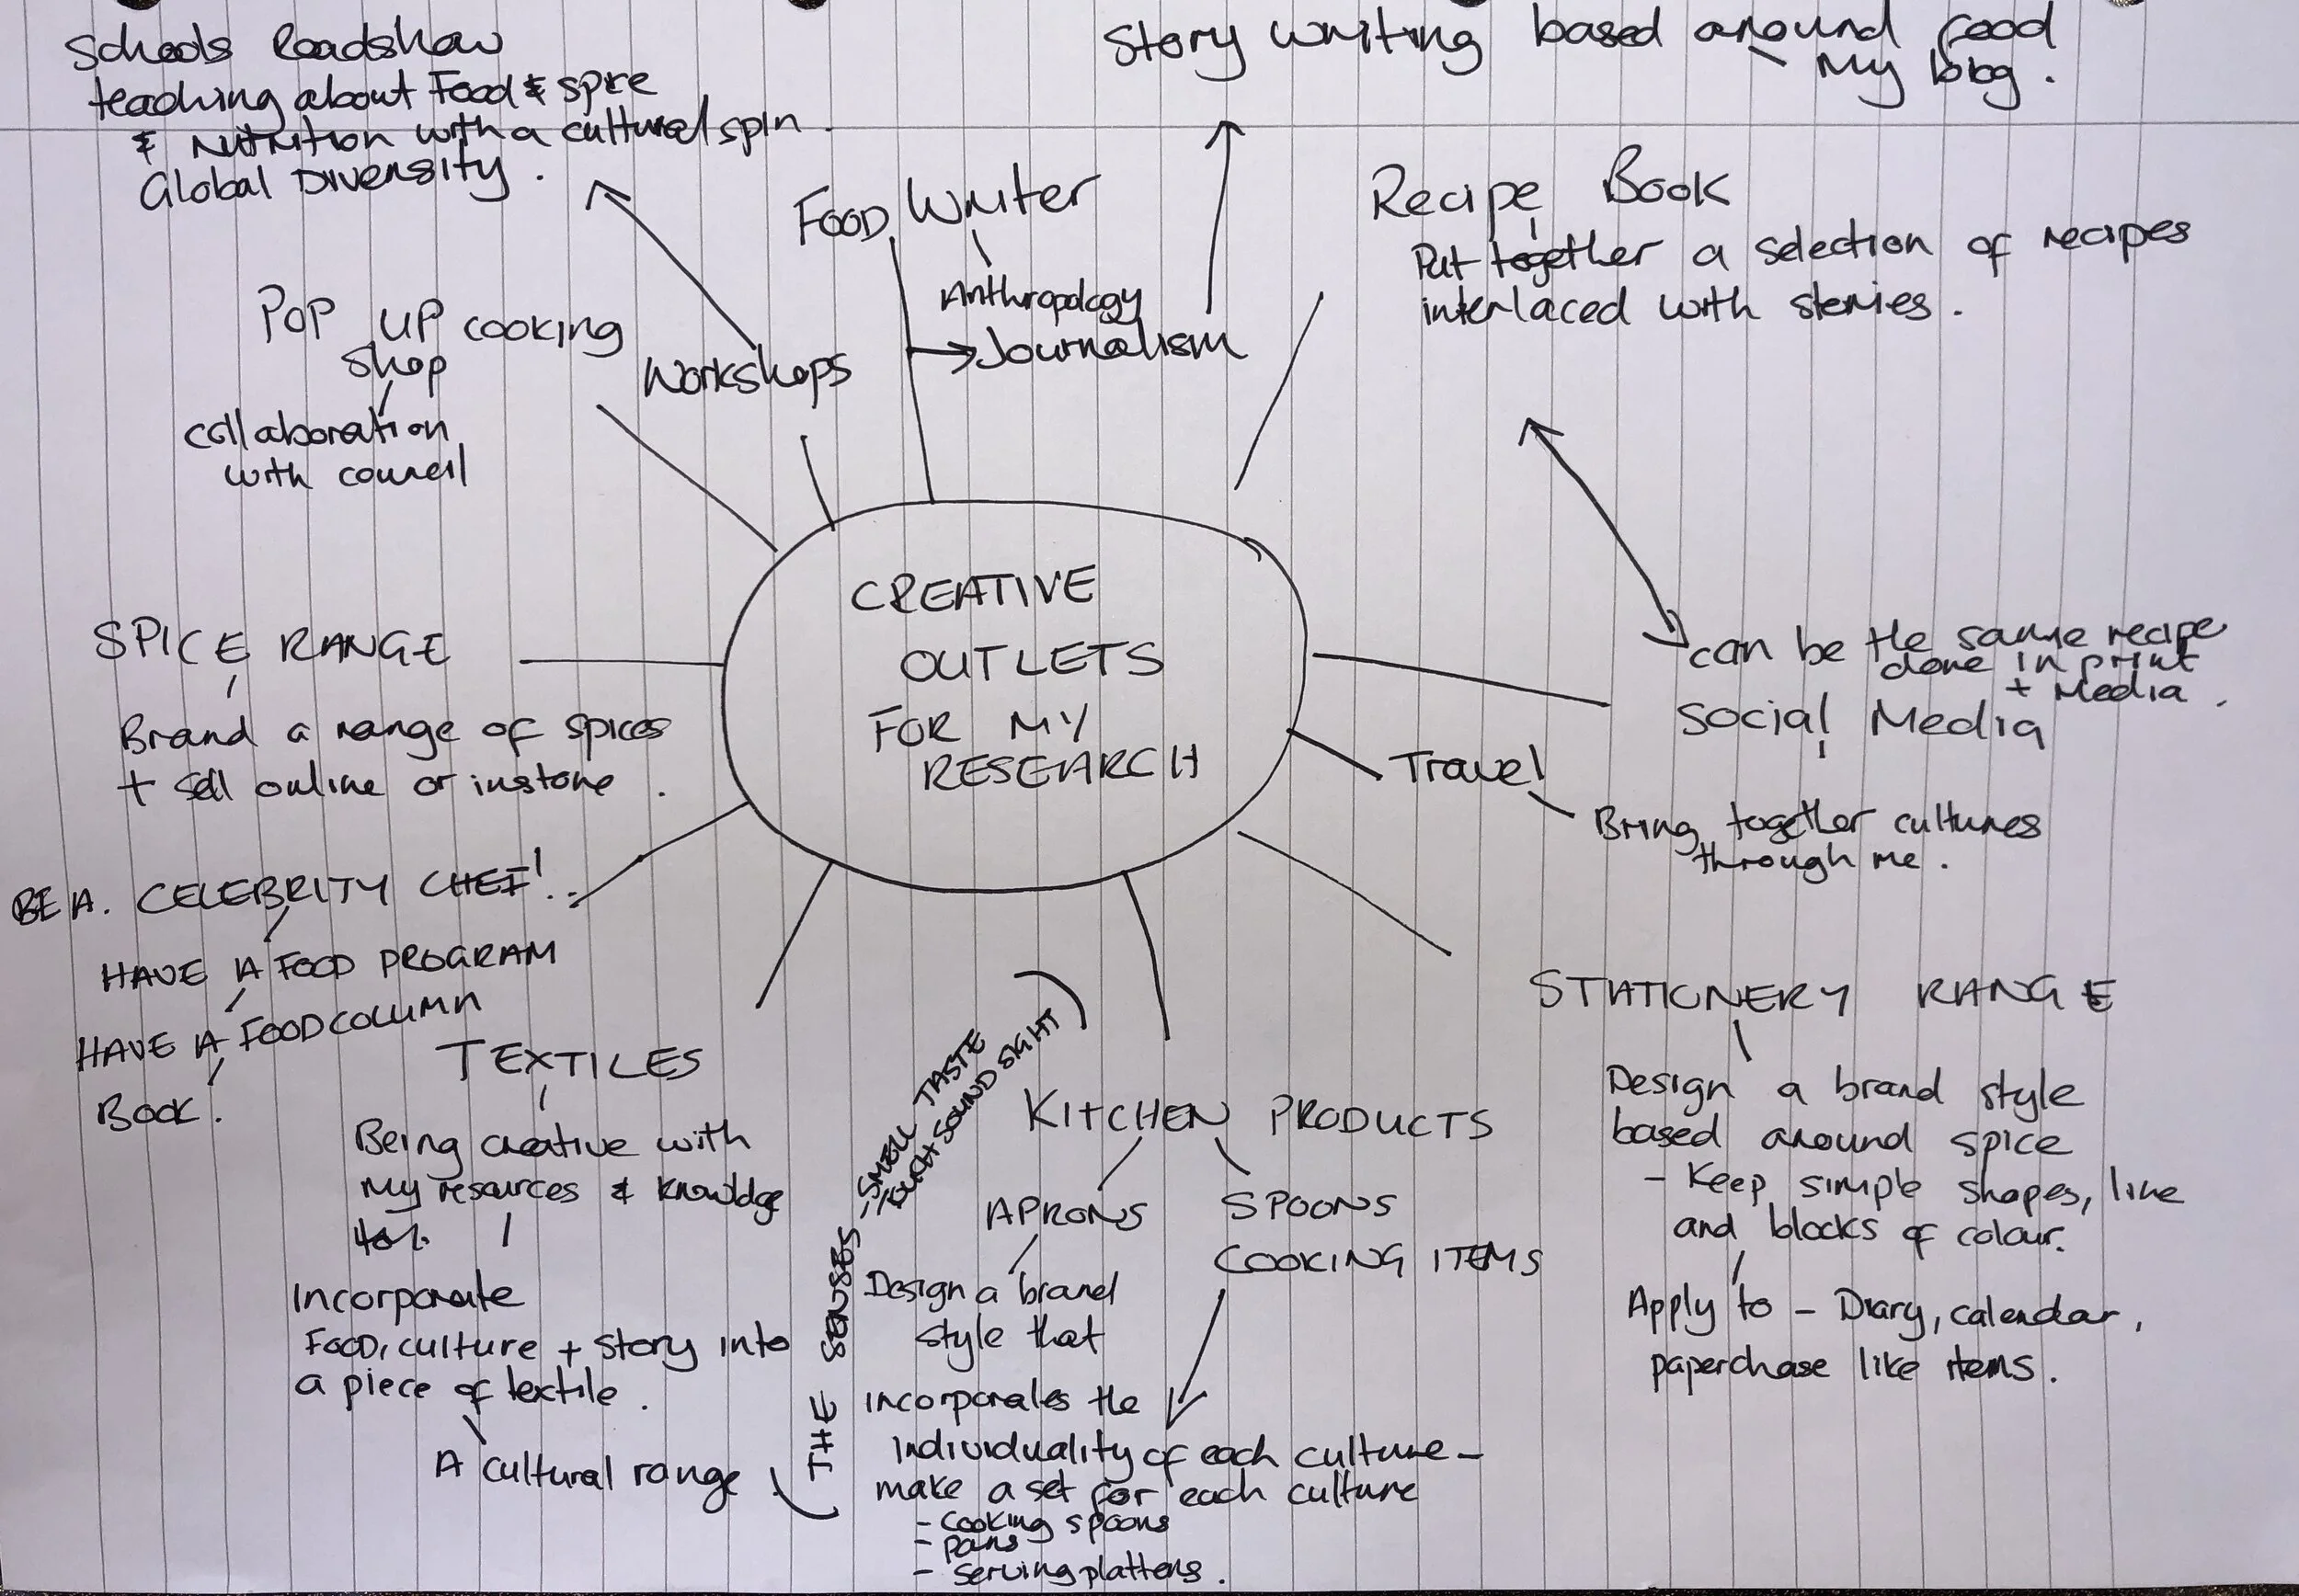 Schools Roadshow
teaching about Food & spice
& Nutrition with a cultural spin.
Global Diversity.
Story writing based around food
- My blog.
Food Writer
Anthropology
Journalism
Recipe Book
Put together a selection of recipes
interlaced with stories.
Pop up cooking
shop
collaboration
with council
Workshops
CREATIVE
OUTLETS
FOR MY
RESEARCH
SPICE RANGE
Brand a range of spices
+ sell online or instore.
can be the same recipe
done in print
+ Media.
Social Media
Travel
Bring together cultures
through me.
BE A. CELEBRITY CHEF!
HAVE A FOOD PROGRAM
HAVE A FOOD COLUMN
BOOK.
TEXTILES
Being creative with
my resources & knowldge
Incorporate
Food, culture + story into
a piece of textile.
A cultural range
THE SENSES - SMELL TASTE
TOUCH SOUND SIGHT
KITCHEN PRODUCTS
APRONS
SPOONS
COOKING ITEMS
Design a brand
style that
incorporates the
individuality of each culture -
make a set for each culture
- cooking spoons
- pans
- serving platters.
STATIONERY RANGE
Design a brand style
based around spice
- Keep simple shapes, line
and blocks of colour.
Apply to - Diary, calendar,
paperchase like items.